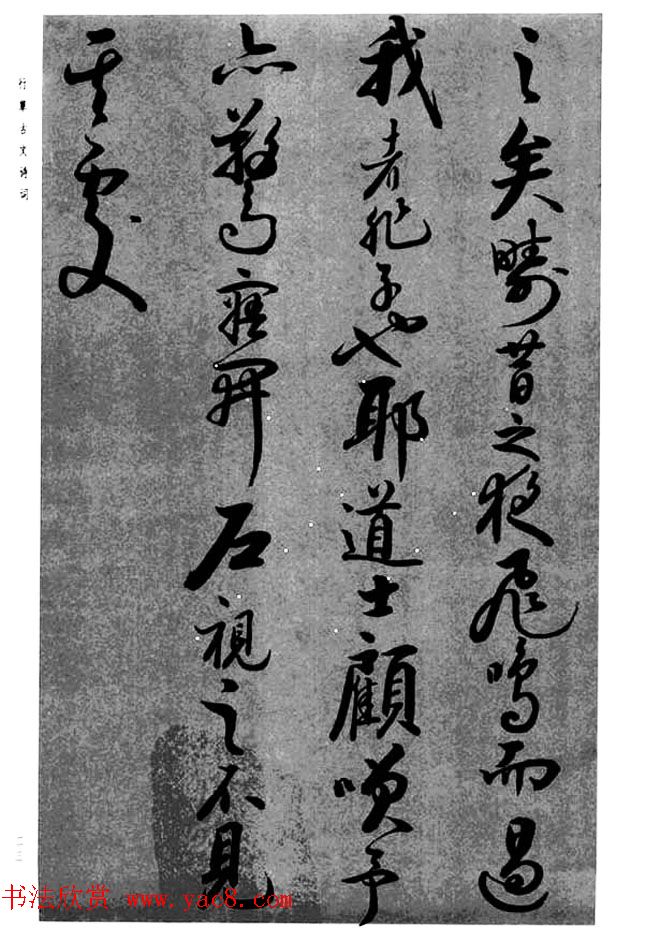 之矣疇昔之夜飛鳴而過
我者非子也耶道士顧咲予
亦驚寤開户視之不見
其處
行草古文诗词
书法欣赏 www.yac8.com